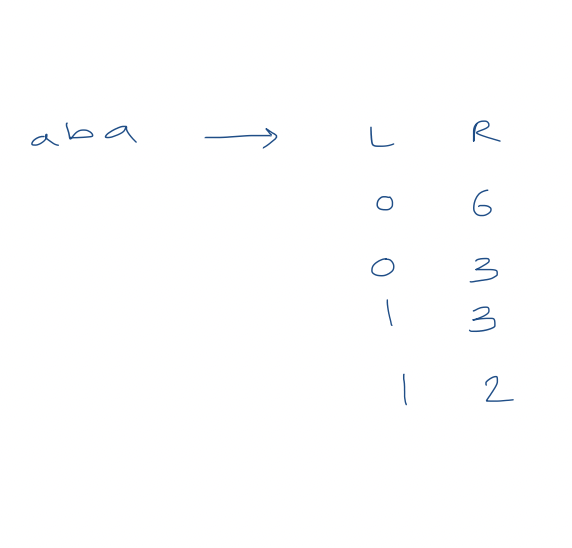 aba → L R
0 6
0 3
1 3
1 2